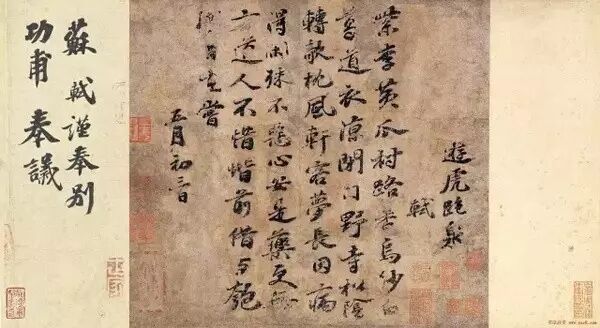 遊虎跑泉
軾
紫李黃瓜村路香烏紗白
葛道衣涼閉門野寺松陰
轉欹枕風軒客夢長因病
得閑殊不惡心安是藥更無
方道人不惜堦前借与匏
樽自在嘗
五月初三日
蘇軾謹奉別
功甫奉議